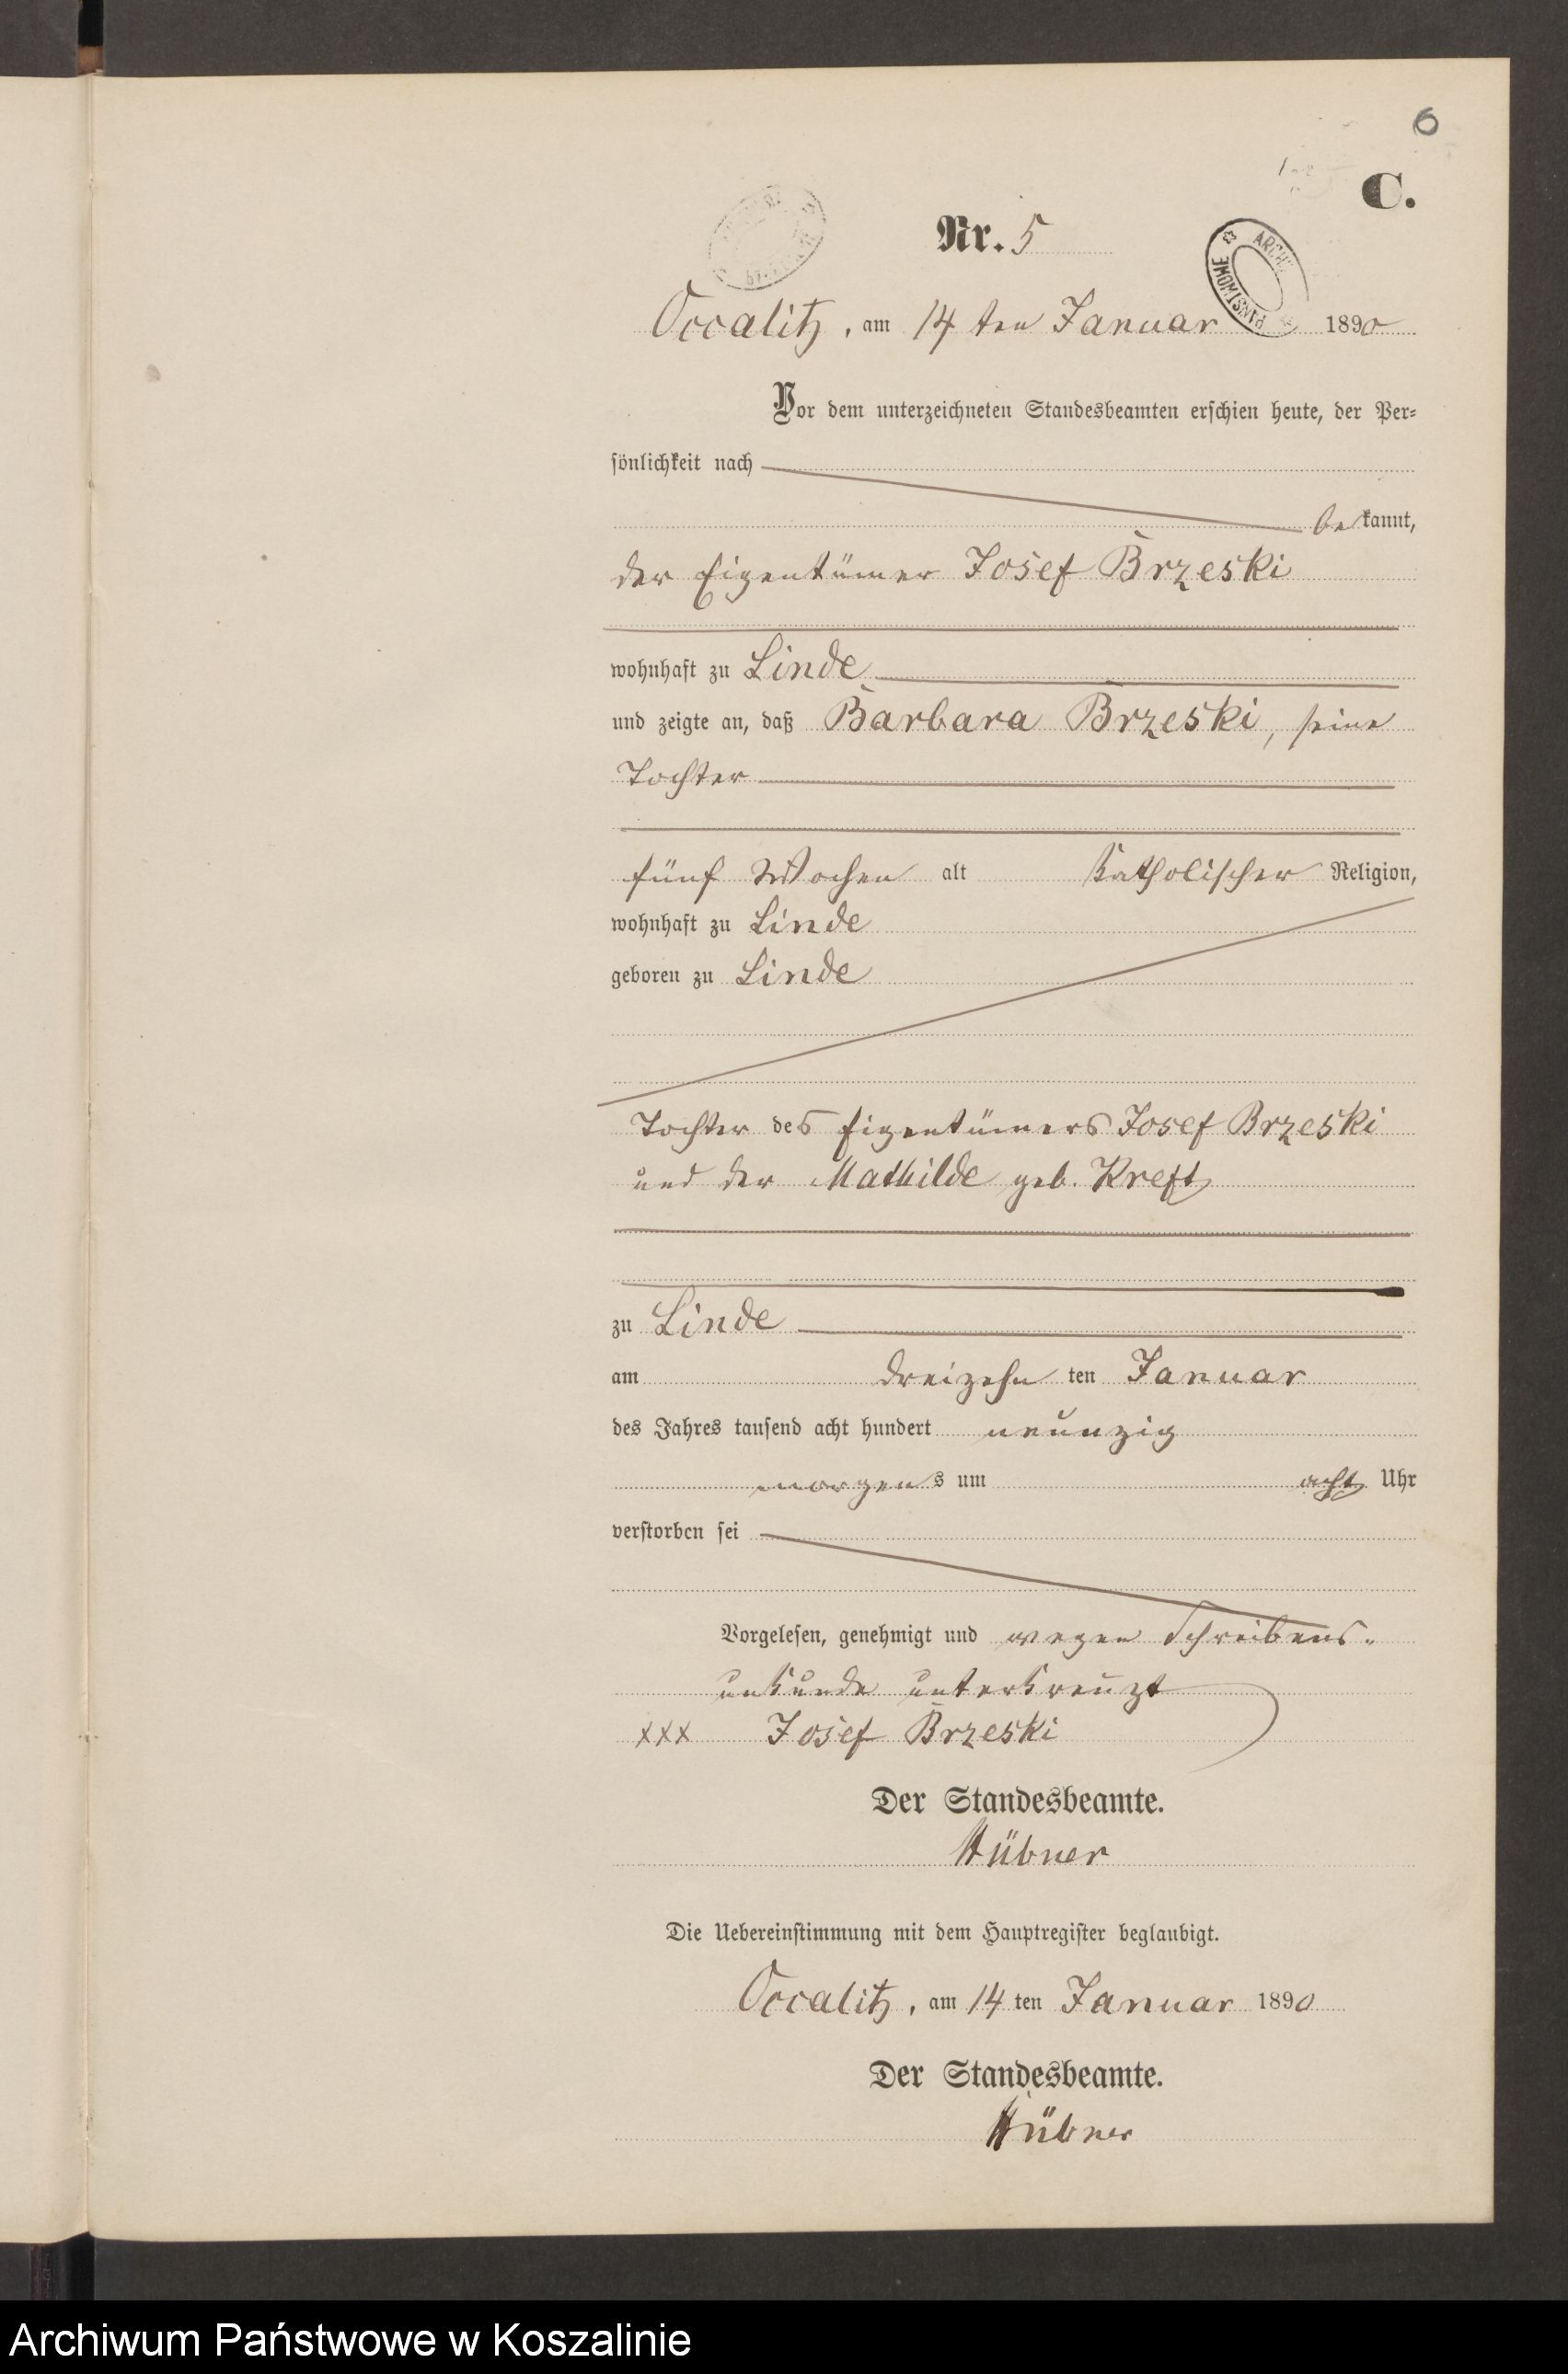 6
C.
Nr. 5
ARCHI
PAŃSTWOWE
Occalitz, am 14 ten Januar 1890
Vor dem unterzeichneten Standesbeamten erschien heute, der Per-
sönlichkeit nach
bekannt,
der Eigentümer Josef Brzeski
wohnhaft zu Linde
und zeigte an, daß Barbara Brzeski, seine
Tochter
fünf Wochen alt katholischer Religion,
wohnhaft zu Linde
geboren zu Linde
Tochter des Eigentümers Josef Brzeski
und der Mathilde geb. Kreft
zu Linde
am dreizehn ten Januar
des Jahres tausend acht hundert neunzig
morgens um acht Uhr
verstorben sei
Vorgelesen, genehmigt und wegen Schreibens-
unkunde unterkreuzt
xxx Josef Brzeski
Der Standesbeamte.
Hübner
Die Uebereinstimmung mit dem Hauptregister beglaubigt.
Occalitz, am 14 ten Januar 1890
Der Standesbeamte.
Hübner
Archiwum Państwowe w Koszalinie